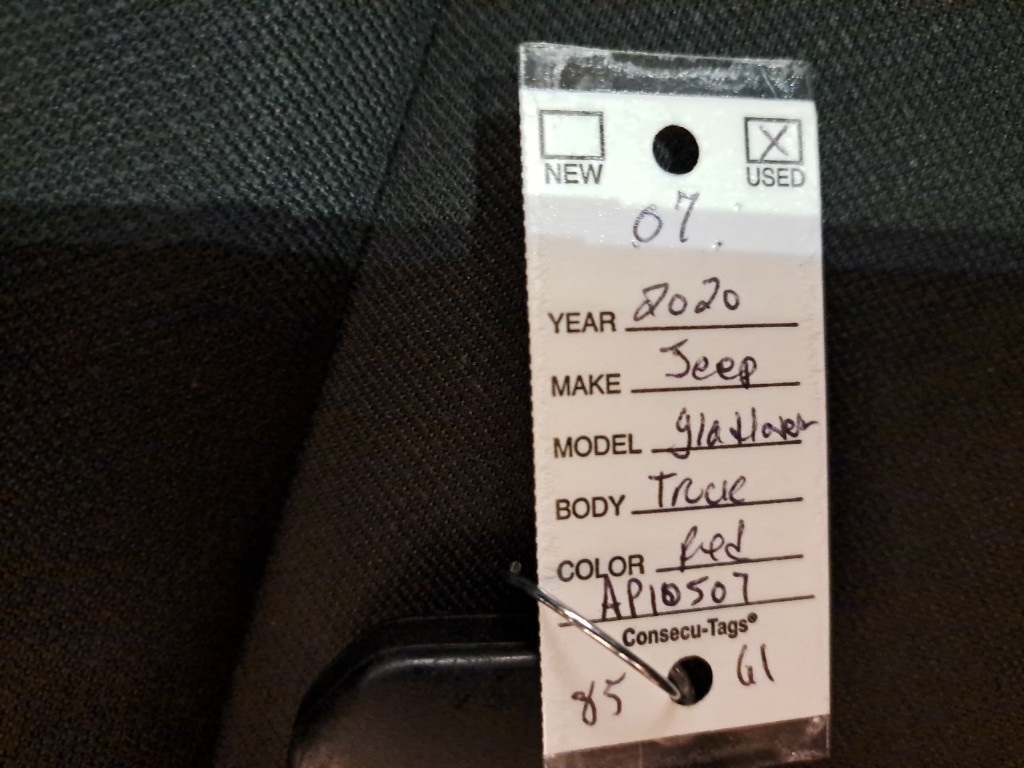 NEW X USED
07
YEAR 2020
MAKE Jeep
MODEL
BODY
COLOR Red
AP10507
Consecu-Tags®
85 G1